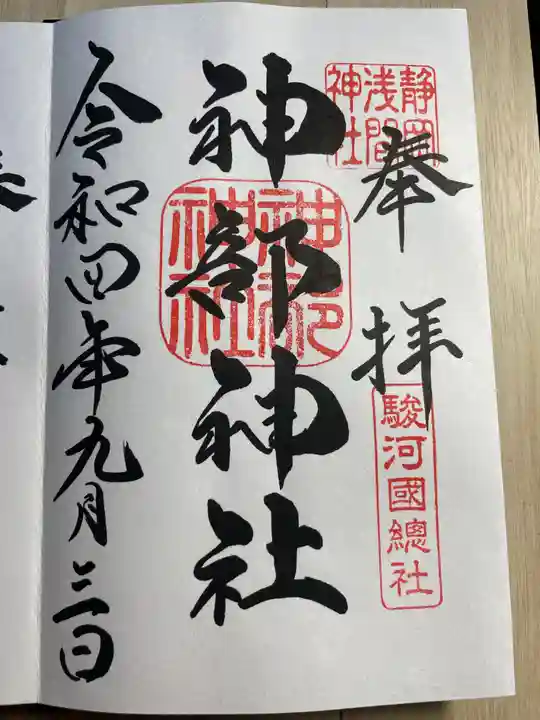 奉拝
静岡
浅間
神社
駿河國總社
神部神社
神部
神社
令和四年九月三日